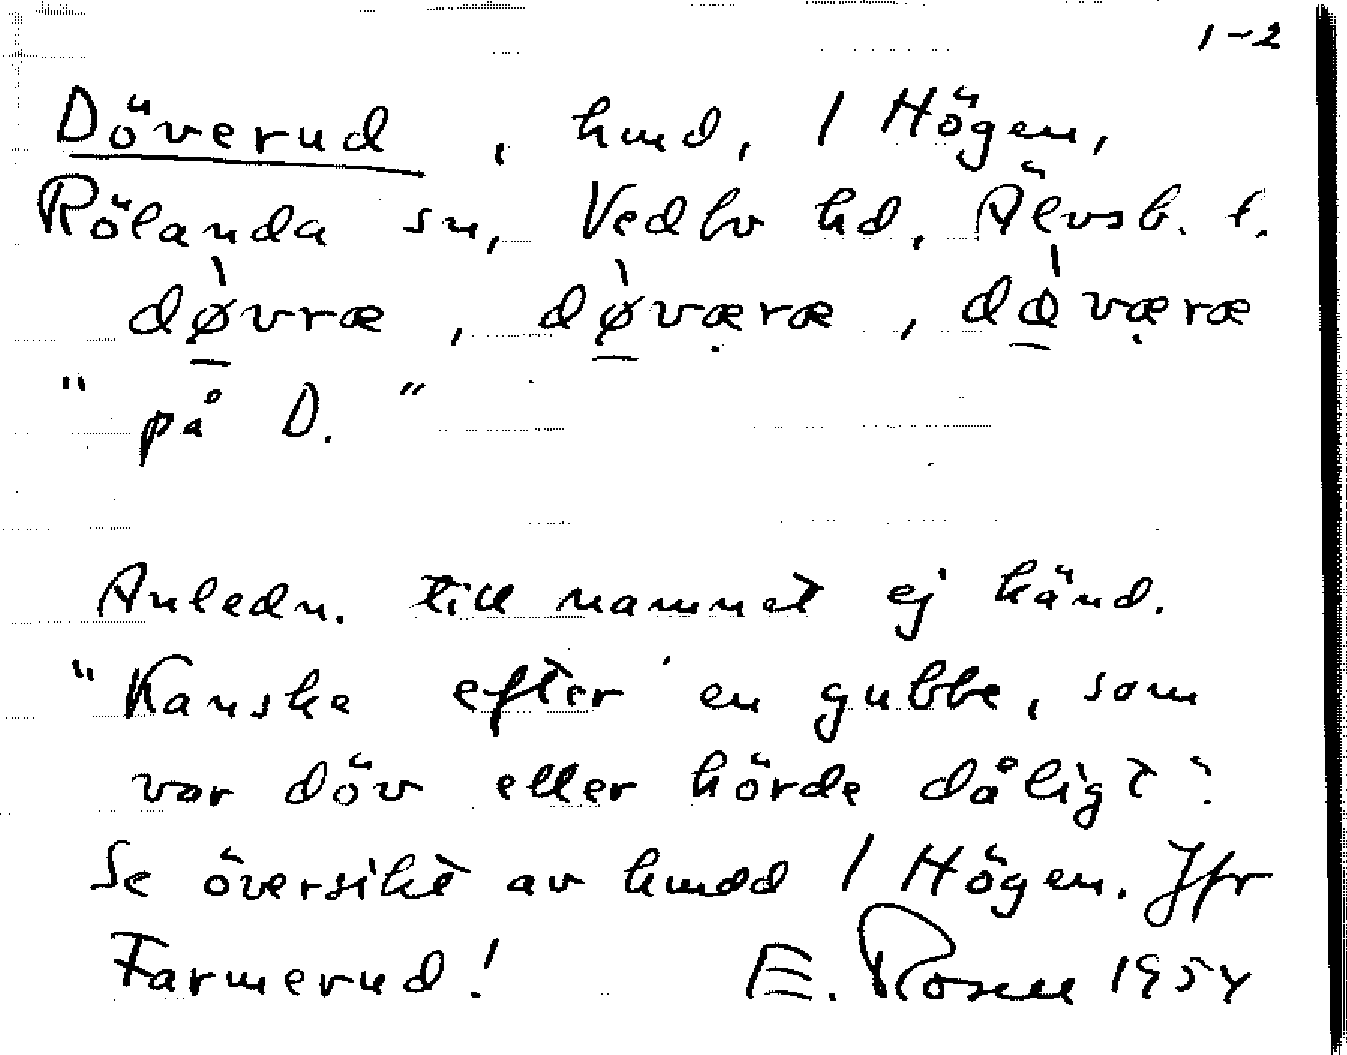 1-2
Döverud, hmd, 1 Högen,
Rölanda sn, Vedbo hd, Älvsb. l.
dø̀vræ, dø̀væ̣ræ, dò̀væ̣ræ
"på D."
Anledn. till namnet ej känd.
"Kanske efter en gubbe, som
var döv eller hörde dåligt".
Se översikt av hmdd 1 Högen. Jfr
Farmerud! E. Rosell 1954